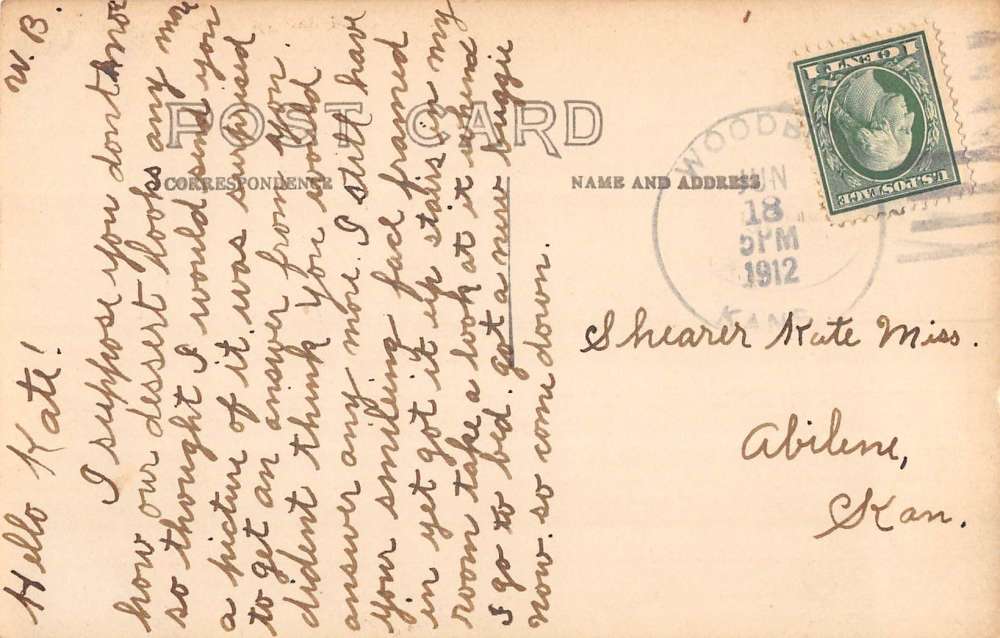 Hello Kate! W. B.
I suppose you dont know
how our dessert looks any more
so thought I would send you
a picture of it. was suprised
to get an answer from you
dident think you would
answer any more. I still have
your smileing face framed
in yet got it up stairs in my
room take a look at it when
I go to bed. got a new buggie
now. so come down.
POST CARD
CORRESPONDENCE
NAME AND ADDRESS
JUN
18
5PM
1912
KANS
1 CENT 1
U.S. POSTAGE
Shearer Kate Miss.
Abilene,
Kan.